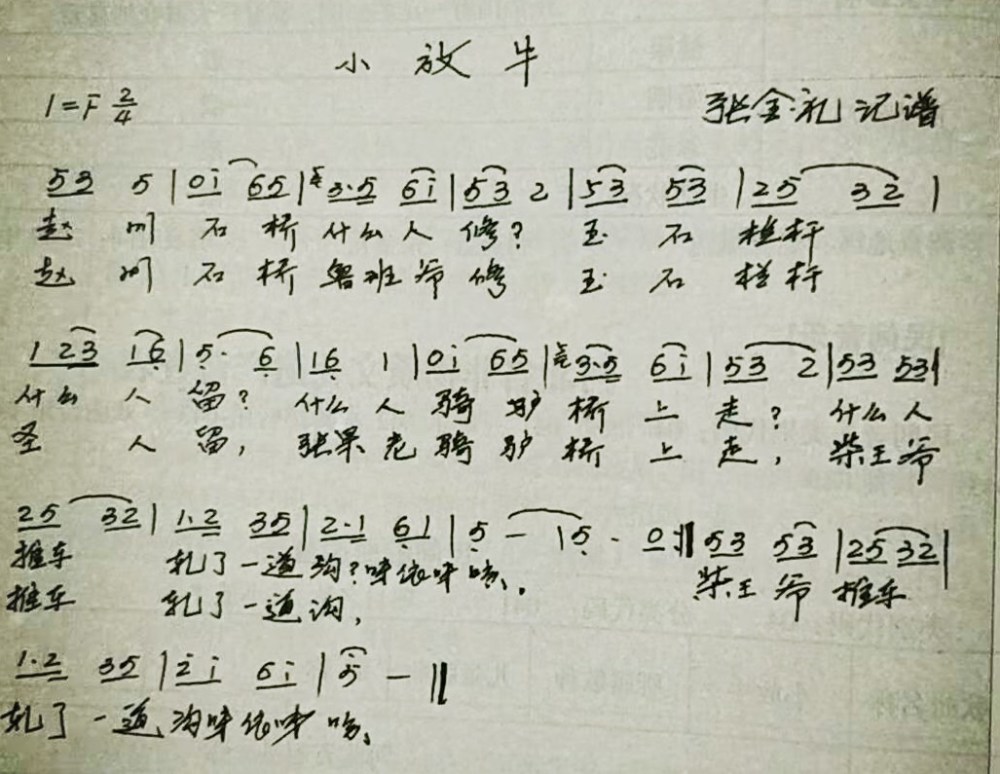 小放牛
1=F 2/4 张金礼记谱
53 5 | 0i 65 | 3·5 6i | 53 2 | 53 53 | 25 32 |
赵州石桥什么人修?玉石栏杆
赵州石桥鲁班爷修玉石栏杆
1 23 16 | 5· 6 | 16 1 | 0i 65 | 3·5 6i | 53 2 | 53 53 |
什么人留?什么人骑驴桥上走?什么人
圣人留,张果老骑驴桥上走,柴王爷
25 32 | 1·2 35 | 2·1 61 | 5 — | 5· 0 :‖ 53 53 | 25 32 |
推车轧了一道沟?呀依呀咳、 柴王爷推车
推车轧了一道沟,
1·2 35 | 2i 6i | 5 — ‖
轧了一道沟呀依呀咳、